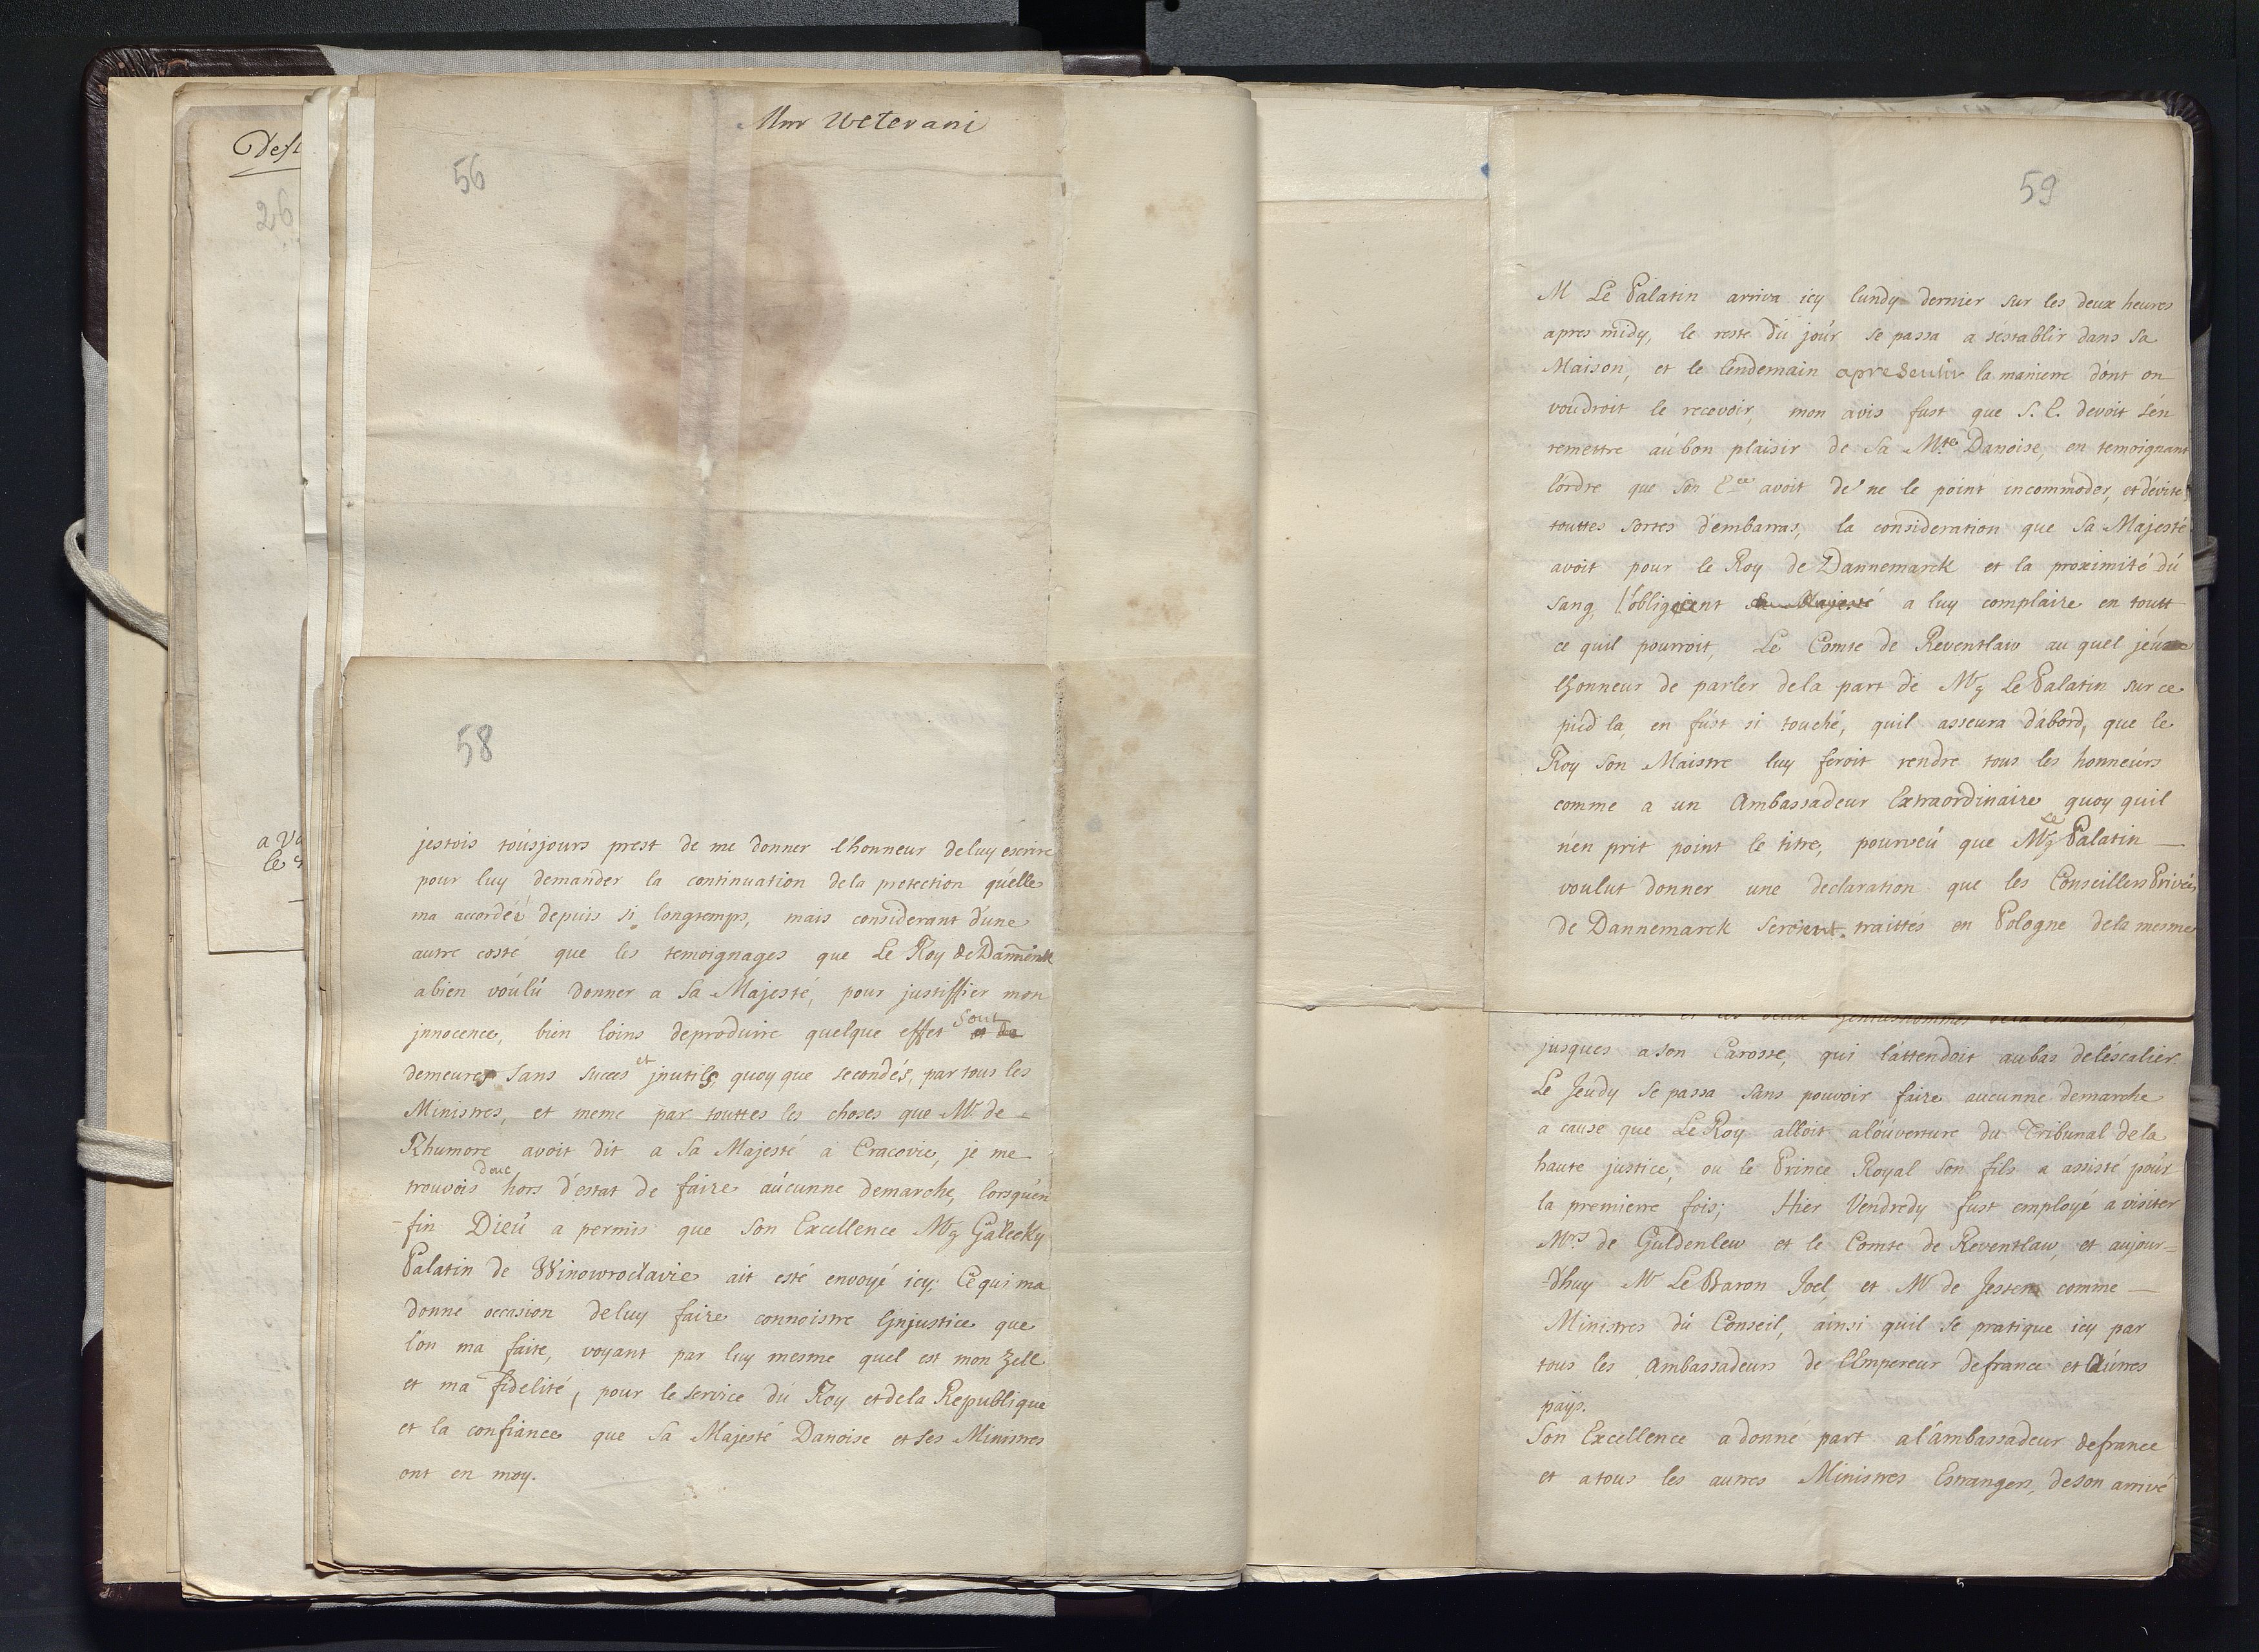 Des
26
a Va
le
Mmr Weterani
56
58
jestois tousjours prest de me donner l'honneur deluy éscrire
pour luy demander la continuation dela protection quelle
ma accordéé depuis si longtemps, mais considerant d'une
autre costé que les temoignages que Le Roy de Dannemk
abien voulú donner a Sa Majesté, pour justiffier mon
jnnocence, bien loins deproduire quelque effet sont
demeures sans succes et jnutils, quoy que secondés, par tous les
Ministres, et meme par touttes les choses que Mr de =
Rhumore avoit dit a Sa Majesté a Cracovie, je me
trouvois donc hors d'éstat de faire aúcunne demarche, lorsqu'en
-fin Dieú a permis que Son Excellence Mg Galecky
Palatin de Winowroclavie ait esté envoyé icy; Ce qui ma
donne occasion deluy faire connoistre l'jnjustice que
l'on ma faite, voyant par luy mesme quel est mon zell
et ma fidelité, pour le service dú Roy et dela Republique
et la confiance que Sa Majesté Danoise et ses Ministres
ont en moy.
59
M Le Palatin arriva icy lundy dernier sur les deux heures
apres midy, le reste dú joúr se passa a s'éstablir dans sa
Maison, et le lendemain la maniere dónt on
voudroit le recevoir, mon avis fust que S. E. devoit s'én
remettre aú bon plaisir de Sa Mte Danoise, en temoignant
lórdre que son Ece avoit de ne le point incommoder, et déviter
touttes sortes d'embarras, la consideration que Sa Majesté
avoit pour le Roy de Dannemarck et la proximité dú
sang, l'obligeoient Sa Majesté a luy complaire en toutt
ce quil pourroit, Le Comte de Reventlaw au quel jéus
l'honneur de parler dela part de Mg Le Palatin sur ce
pied la, en fúst si touché, quil asseura dábord, que le
Roy son Maistre luy feroit rendre tous les honneúrs
comme a un Ambassadeur Extraordinaire quoy quil
n'én prit point le titre, pourveú que Mg Le Palatin —
voulut donner une declaration que les Conseillers Privés
de Dannemarck seroient traittés en Pologne dela mesme
jusques a son Carosse, qui l'áttendoit aubas deléscalier.
Le Jeudy se passa sans pouvoir faire aucunne demarche
a cause que Le Roy alloit alóuverture du Tribunal dela
haute justice, ou le Prince Royal son fils a assisté poúr
la premierre fois; Hier Vendredy fust employé a visiter
Mrs de Guldenlew et le Comte de Reventlaw, et aujour=
-d'huy Mr Le Baron Joel, et Mr de Jessen comme —
Ministres dú Conseil, ainsi quil se pratique icy par
tous les Ambassadeurs de l'Empereur defrance et d'aútres
paÿs.
Son Excellence adonné part al'ámbassadeur defrance
et atous les autres Ministres Estrangers, deson arrivé